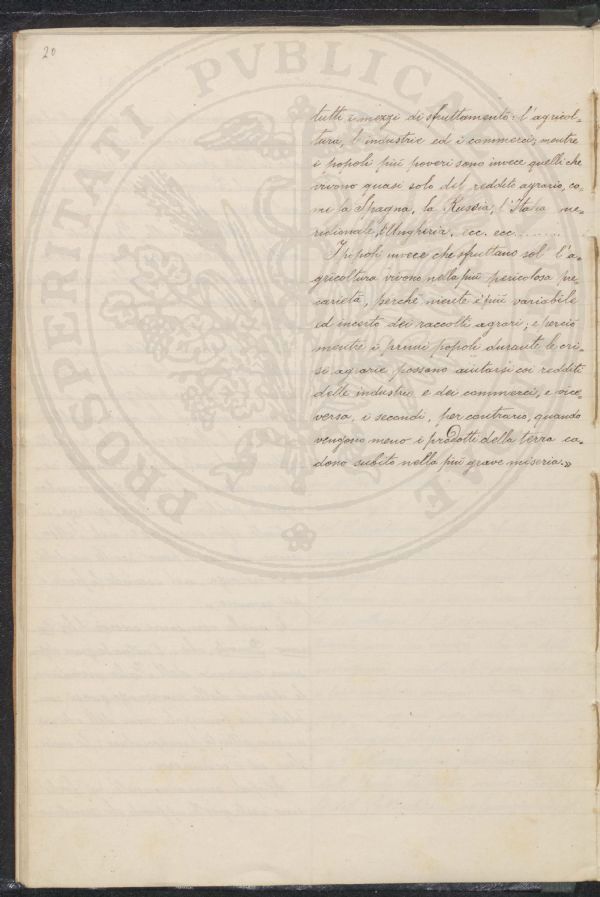 20
PROSPERITATI PVBLICAE
tutti i mezzi di sfruttamento: l'agricol-
tura, l'industrie ed i commerci; mentre
i popoli più poveri sono invece quelli che
vivono quasi solo del reddito agrario, co-
me la Spagna, la Russia, l'Italia me-
ridionale, l'Ungheria, ecc. ecc..........
I popoli invece che sfruttano sol l'a-
gricoltura vivono nella più pericolosa pre-
carietà, perchè niente è più variabile
ed incerto dei raccolti agrari; e perciò
mentre i primi popoli durante le cri-
si agarie possono aiutarsi coi redditi
delle industrie e dei commerci, e vice-
versa, i secondi, per contrario, quando
vengono meno i prodotti della terra ca-
dono subito nella più grave miseria.»